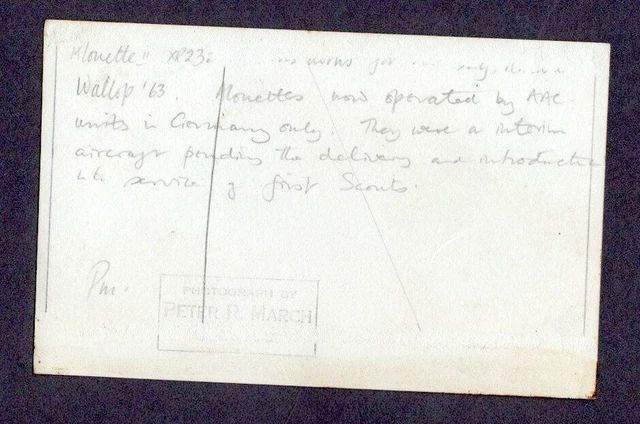 "Alouette" XR232 works for
Wallop '63. Alouettes now operated by AAC
units in Germany only. They were a interim
aircraft pending the delivery and introduction
into service of first Scouts.
PM.
PHOTOGRAPH BY
PETER R. MARCH